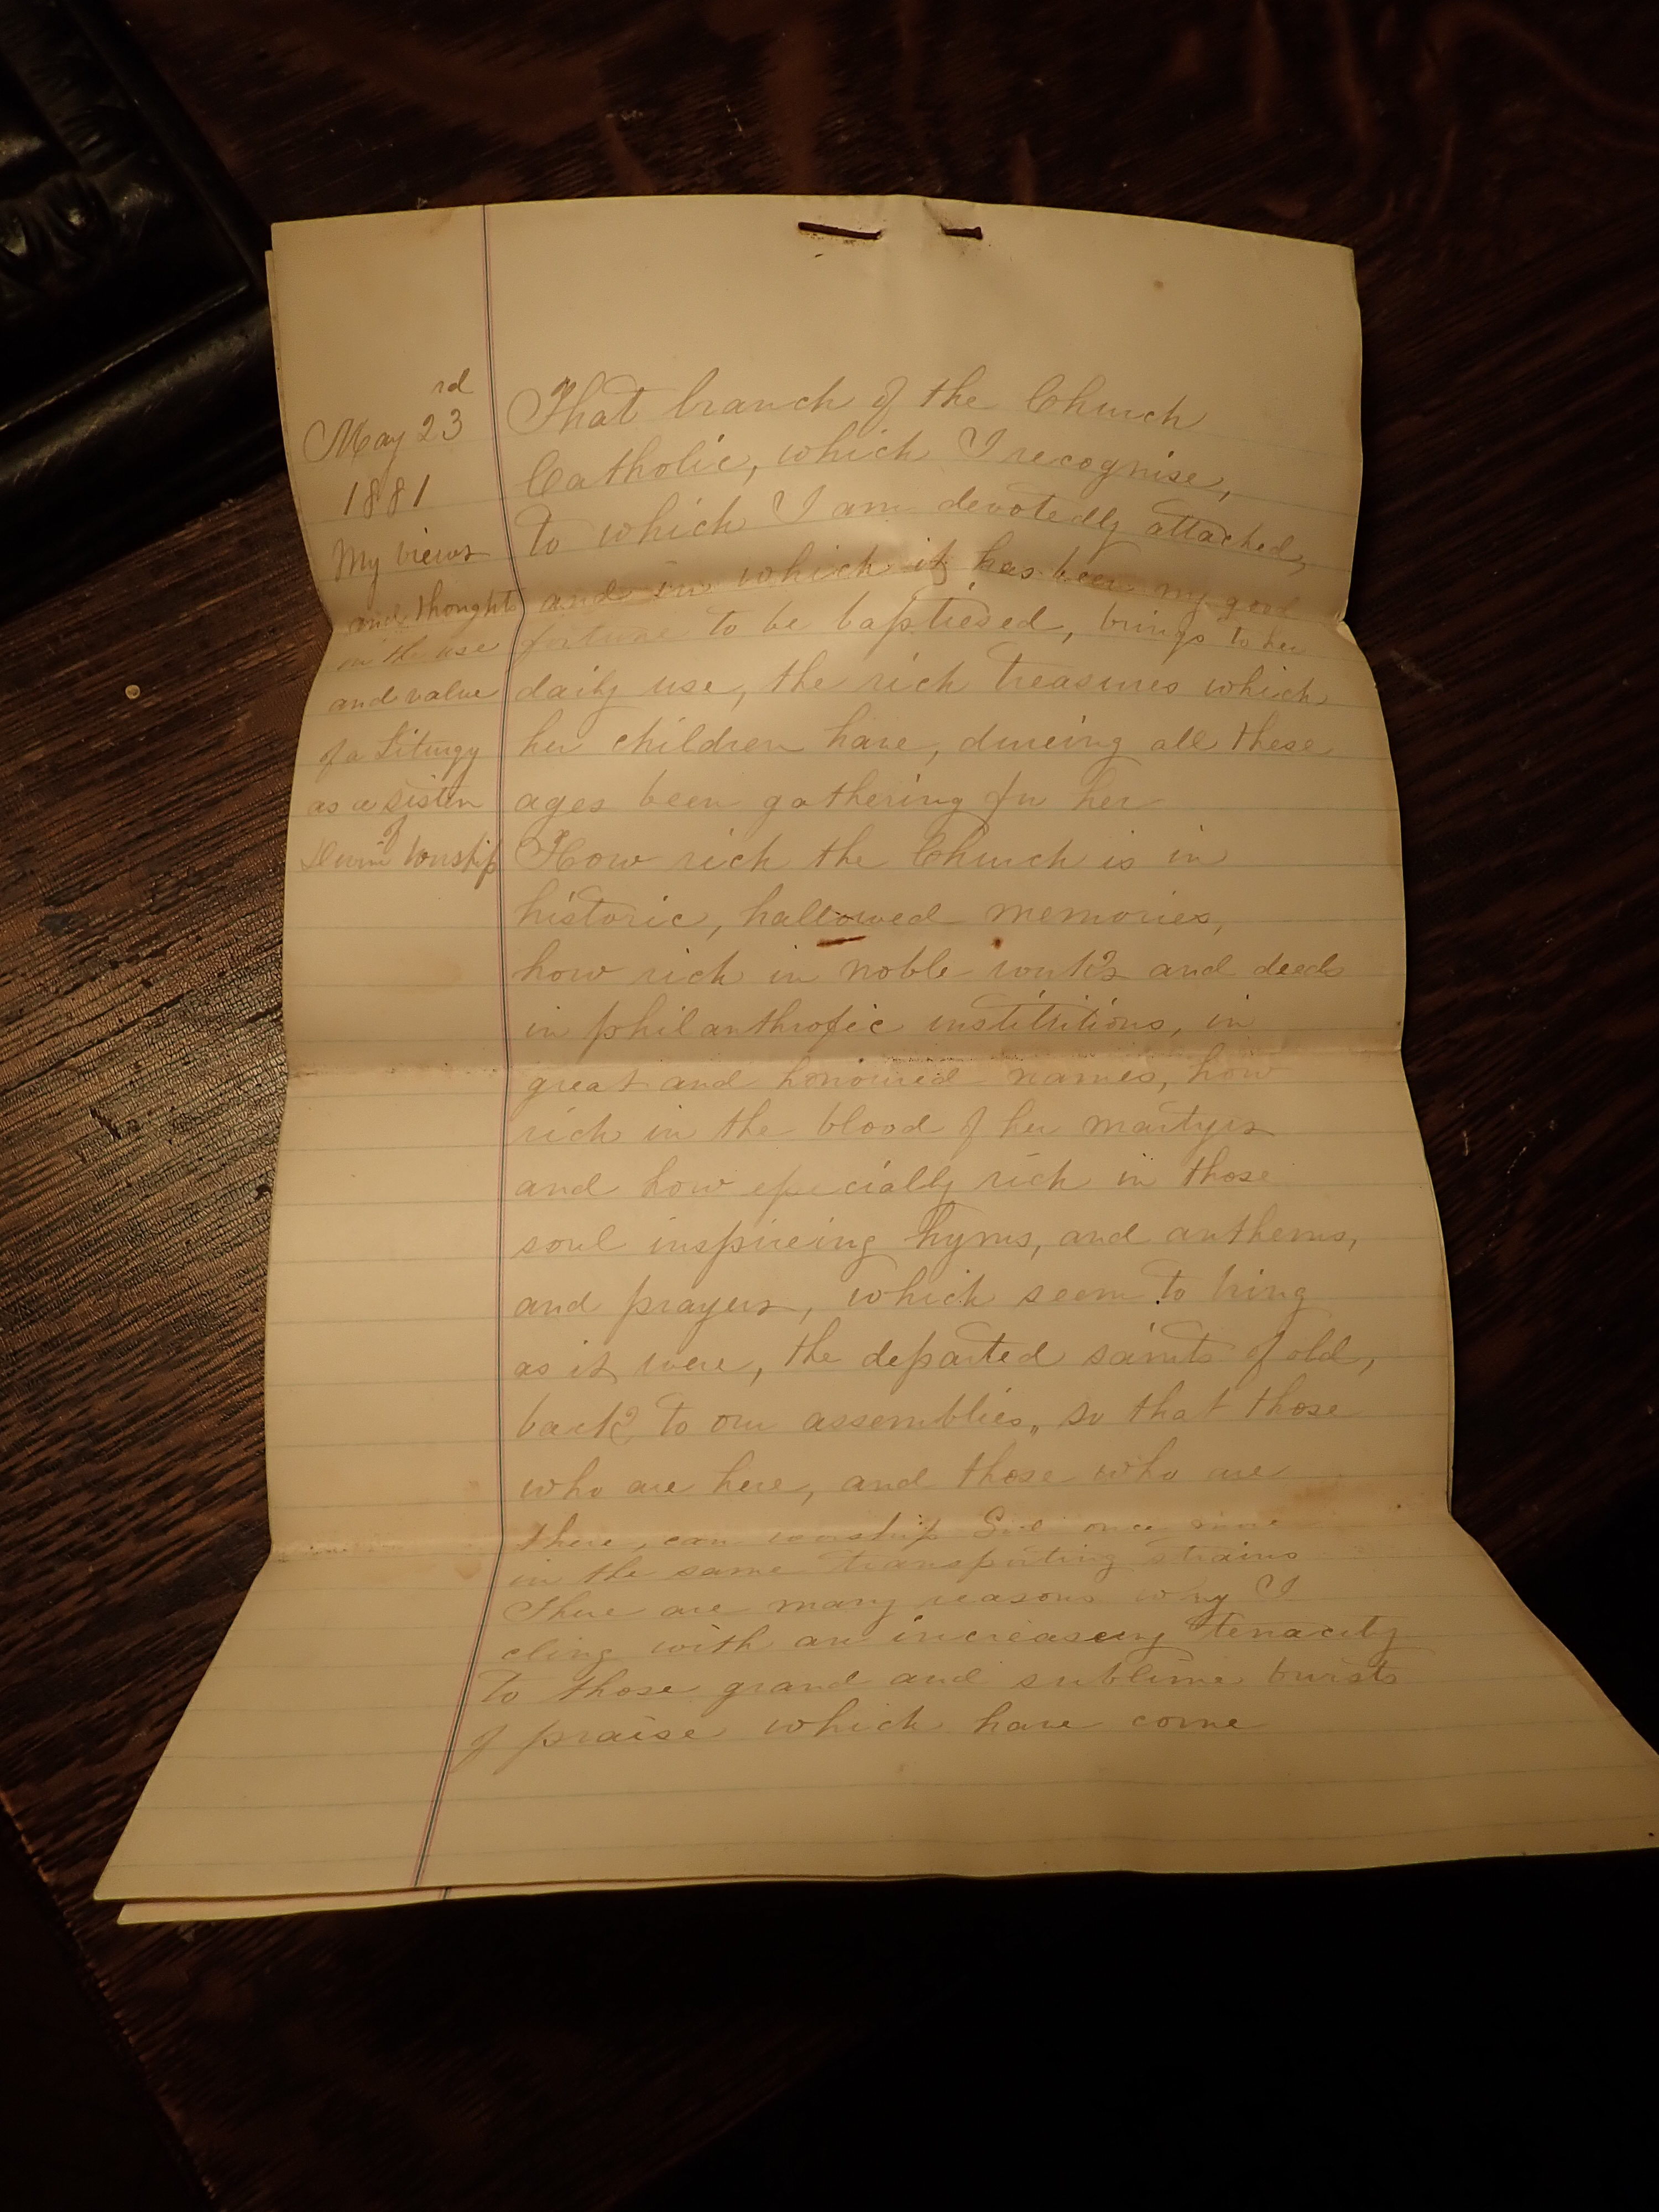 May 23rd
1881
My views
and thoughts
in the use
and value
of a Liturgy
as a sistem
of
Divine Worship
That branch of the Church
Catholic, which I recognise,
to which I am devotedly attached,
and in which it has been my good
fortune to be baptised, brings to her
daily use, the rich treasures which
her children have, dureing all these
ages been gathering for her
How rich the Church is in
historic, hallowed memories,
how rich in noble works and deeds
in philanthropic institutions, in
great and honoured names, how
rich in the blood of her martyrs
and how especially rich in those
soul inspireing hyms, and anthems,
and prayers, which seem to bring
as it were, the departed saints of old,
back to our assemblies, so that those
who are here, and those who are
there, can worship God once more
in the same transporting strains
There are many reasons why I
cling with an increaseing tenacity
to those grand and sublime bursts
of praise which have come